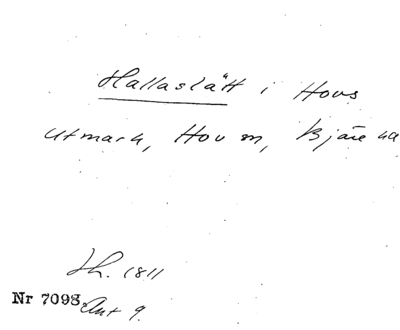 Hallaslätt i Hovs
utmark, Hov sn, Bjäre hd
Sk. 1811
Nr 7098. Akt 9.